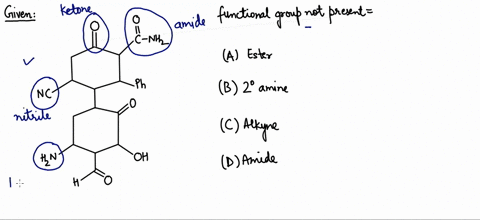 Given:
ketone
functional group not present =
O
O
C-NH₂
amide
(A) Ester
Ph
(B) 2° amine
NC
nitrile
O
(C) Alkyne
H₂N
OH
(D) Amide
H
O
1